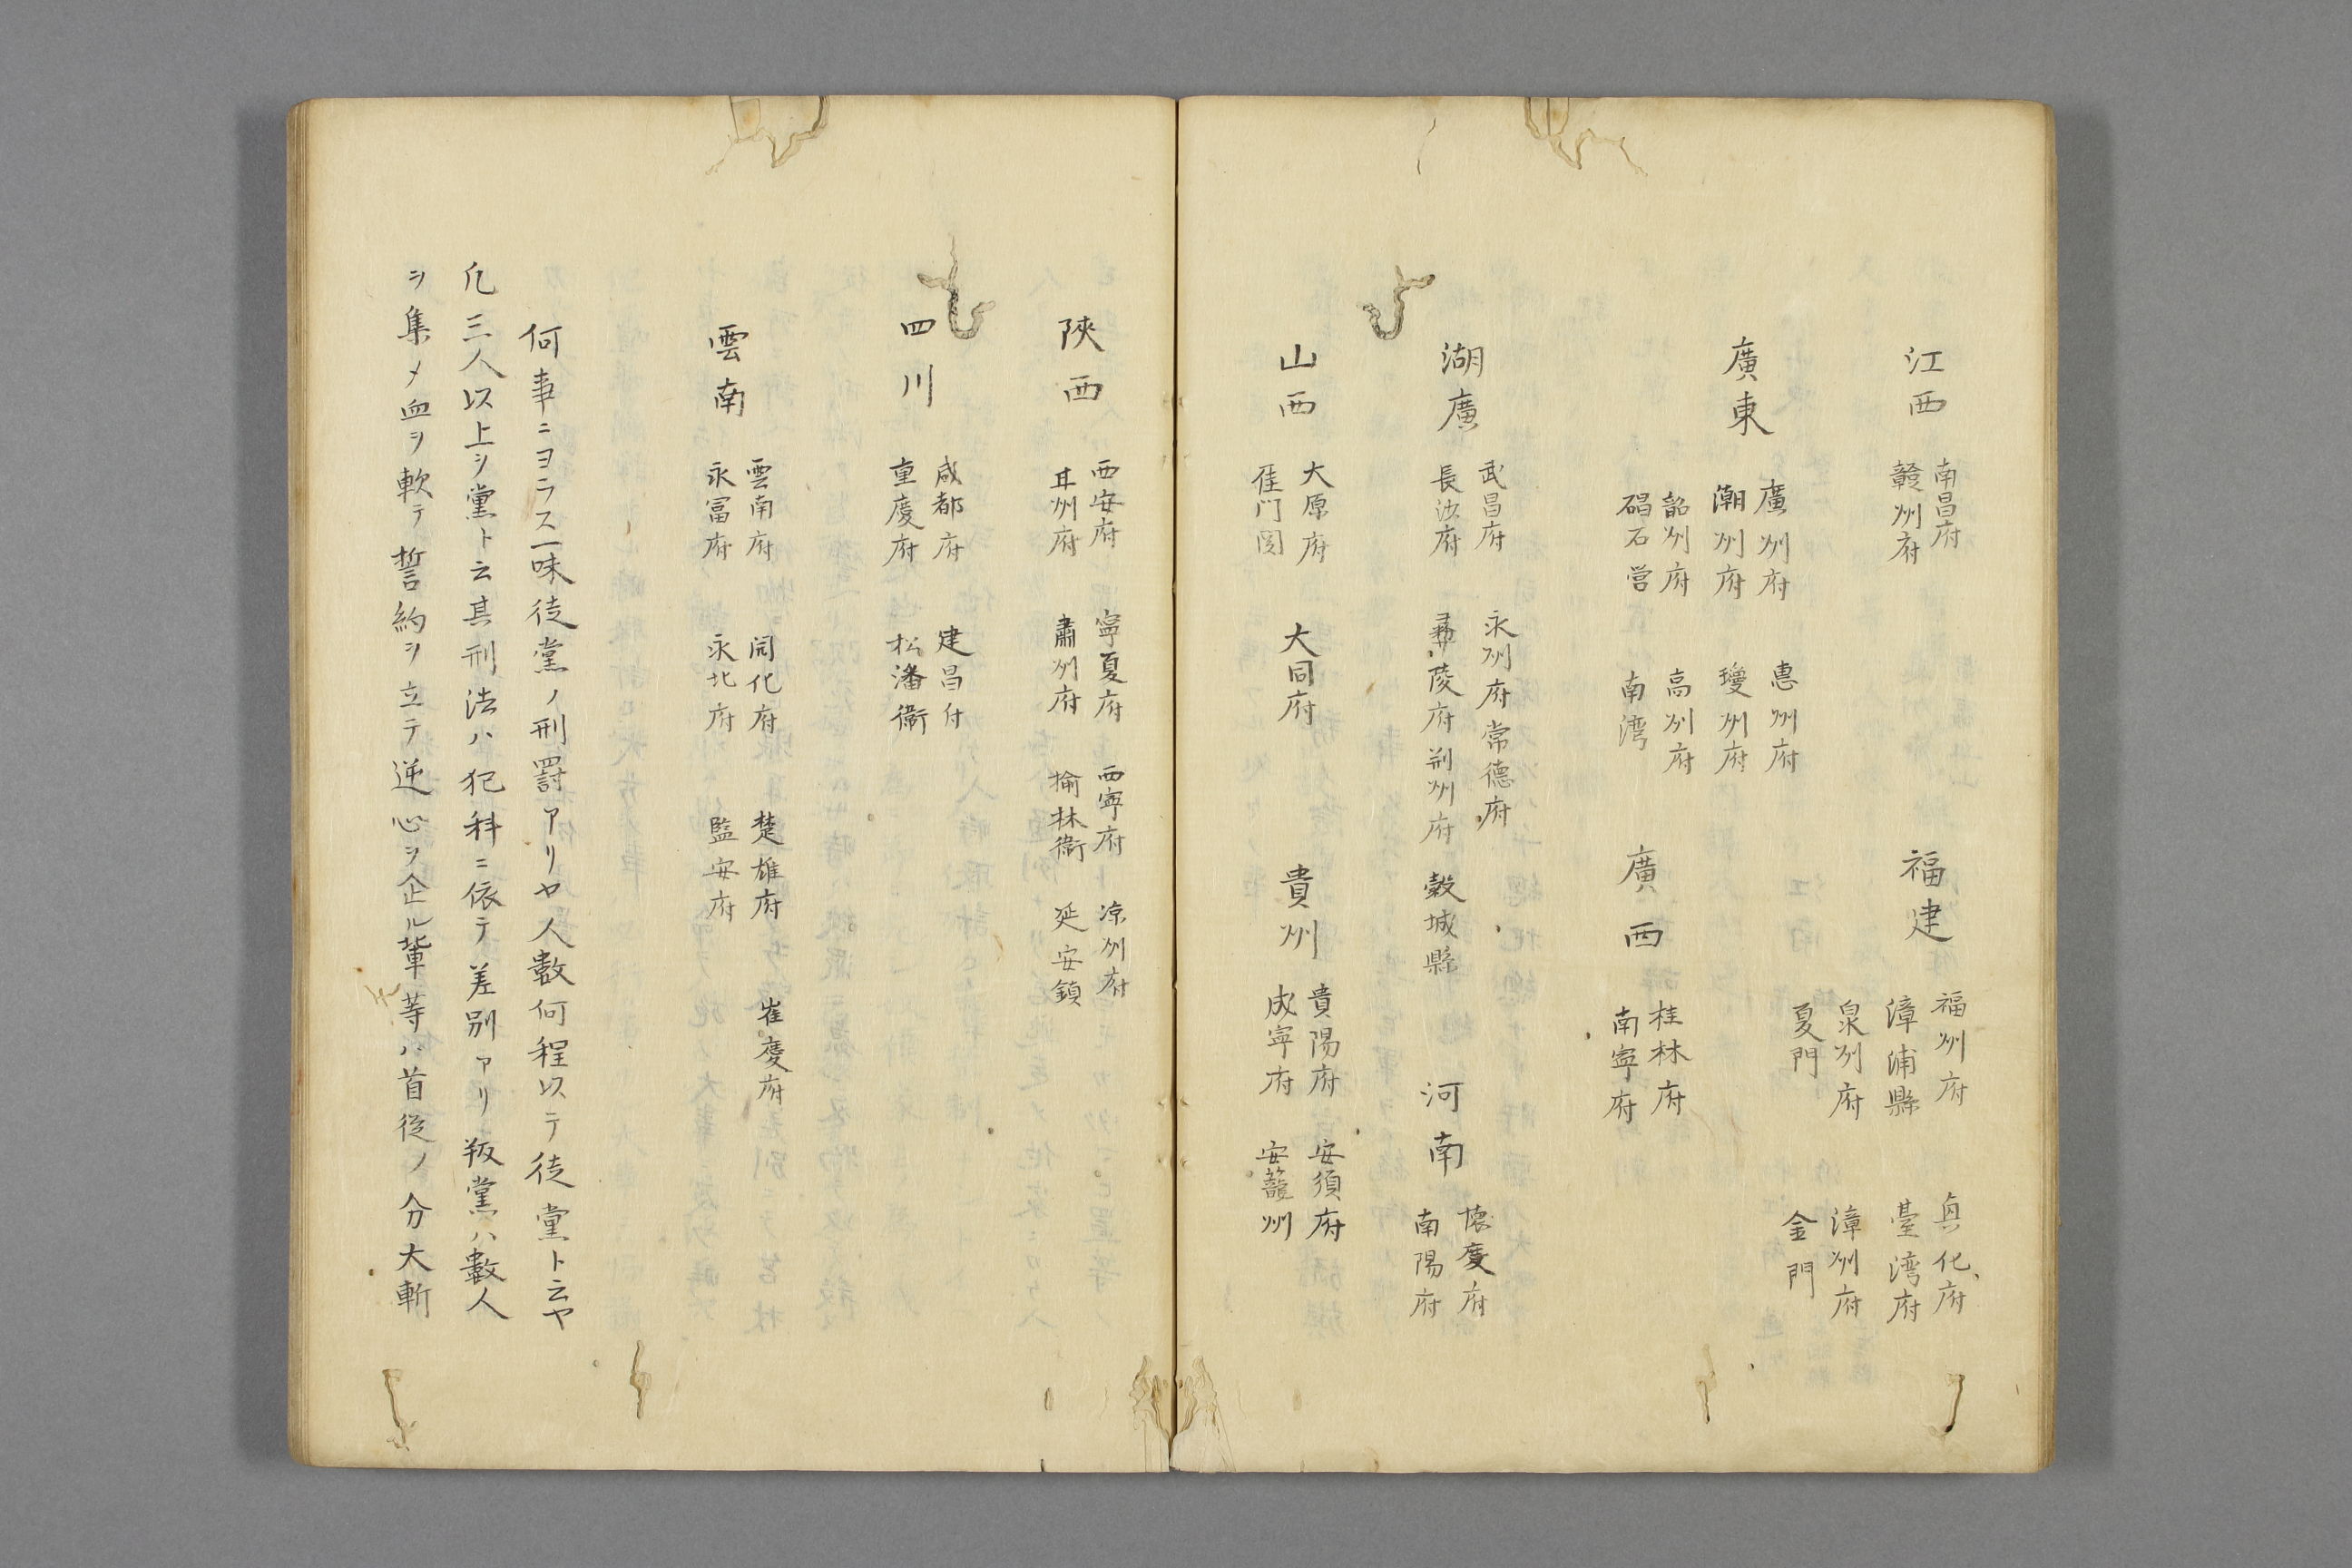 江西
南昌府
贛州府
福建
福州府
漳浦縣
泉州府
夏門
真化府
臺湾府
漳州府
金門
廣東
廣州府
潮州府
韶州府
碣石営
惠州府
瓊州府
高州府
南湾
廣西
桂林府
南寧府
湖廣
武昌府
長沙府
永州府
常德府
彝陵府
荊州府
穀城縣
河南
懷慶府
南陽府
山西
大原府
鴈门関
大同府
貴州
貴陽府
成寧府
安須府
安籠州
陝西
西安府
甘州府
寧夏府
肅州府
西寧府
榆林衞
凉州府
延安鎮
四川
咸都府
重慶府
建昌府
松潘衞
雲南
雲南府
永富府
開化府
永北府
楚雄府
監安府
崔慶府
何事ニヨラス一味徒黨ノ刑罸アリヤ人數何程以テ徒黨ト云ヤ
凡三人以上ヲ黨ト云其刑法ハ犯科ニ依テ差別アリ叛黨ハ數人
ヲ集メ血ヲ軟テ誓約ヲ立テ逆心ヲ企ル輩等ハ首從ノ分大斬